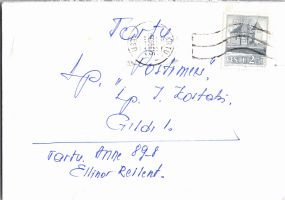 Tartu
Lp. "Postimees",
Lp. J.
Gildi 1.
Tartu, Anne 89-1
Ellinor Rellent.
EESTI 2